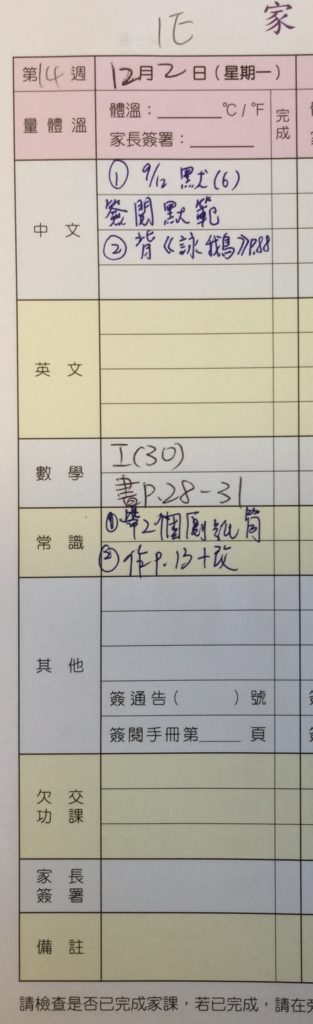 1E
家
第14週 12月2日（星期一）
量體溫 體溫：______℃/℉ 完成
家長簽署：______
中文 ① 9/12 默(6)
簽閱默範
② 背《詠鵝》P.88
英文
數學 I(30)
書P.28-31
常識 ① 帶2個廁紙筒
② 作P.13+改
其他
簽通告（ ）號
簽閱手冊第____頁
欠交功課
家長簽署
備註
請檢查是否已完成家課，若已完成，請在